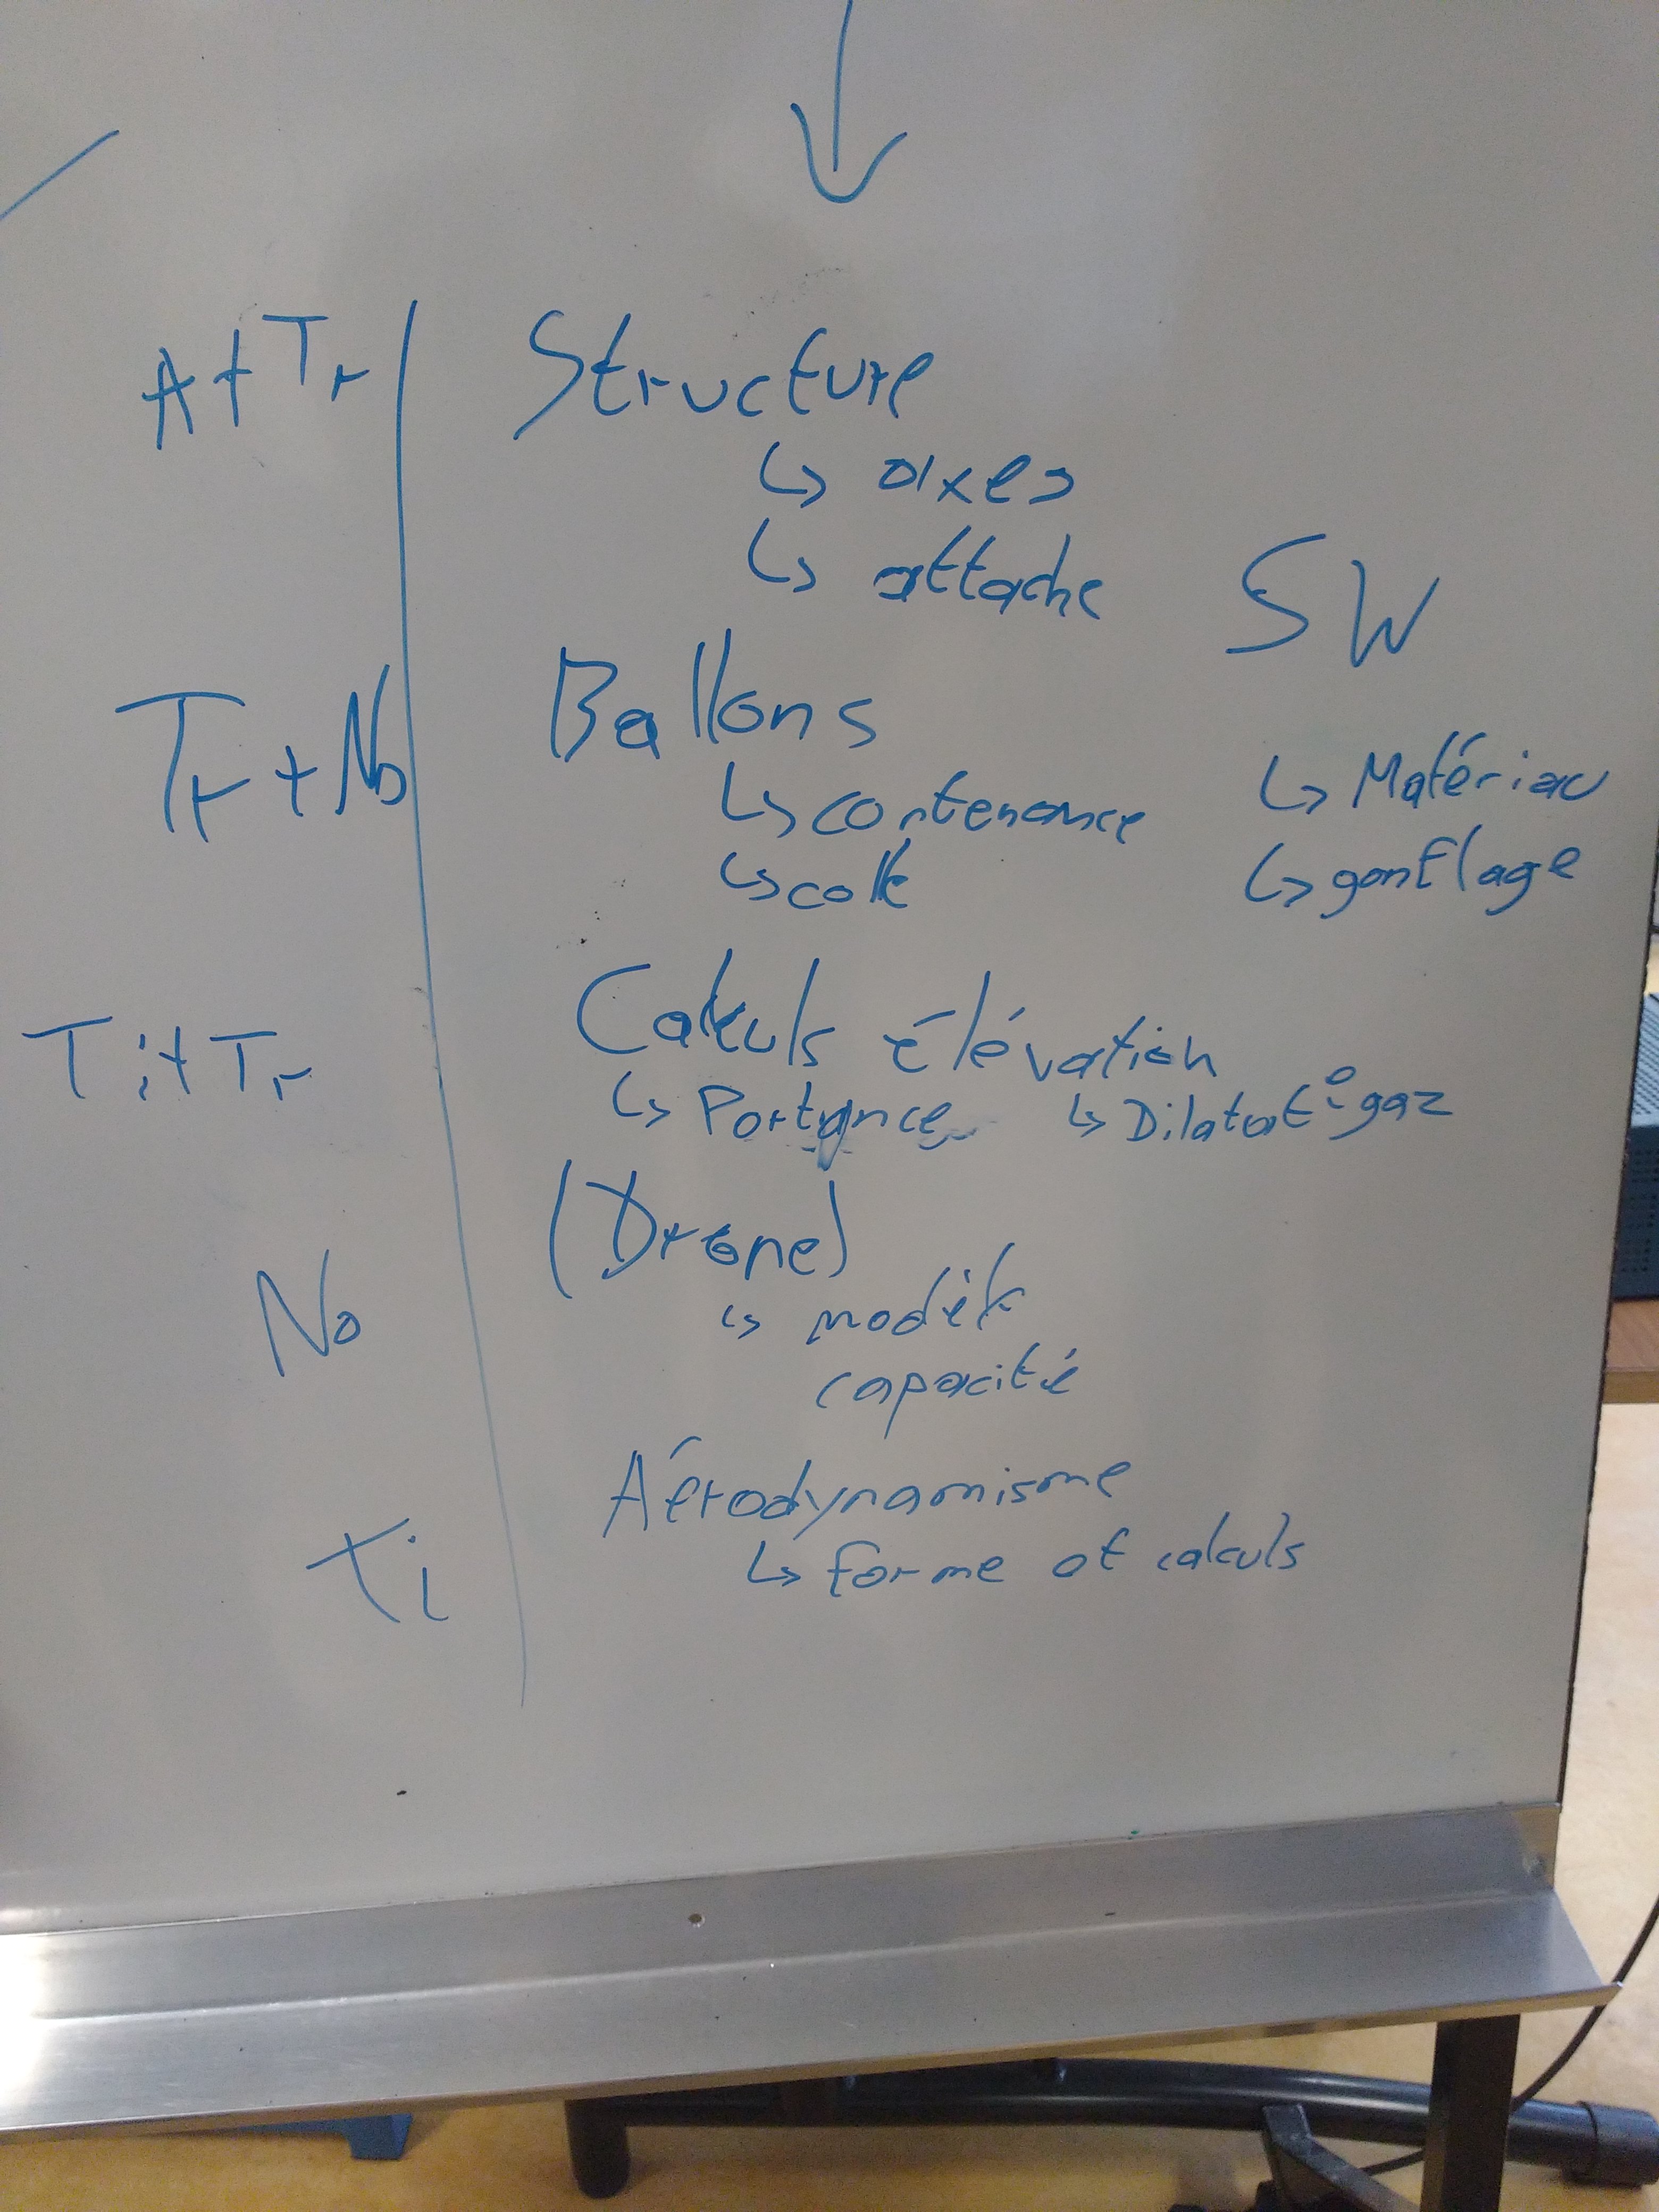 A + Tr Structure
↳ axes
↳ attache
SW
Tr + No Ballons
↳ contenance ↳ Matériau
↳ colle ↳ gonflage
Ti + Tr Calculs élévation
↳ Portance ↳ Dilatat° gaz
No (Drone)
↳ modèle
capacité
Ti Aérodynamisme
↳ forme et calculs